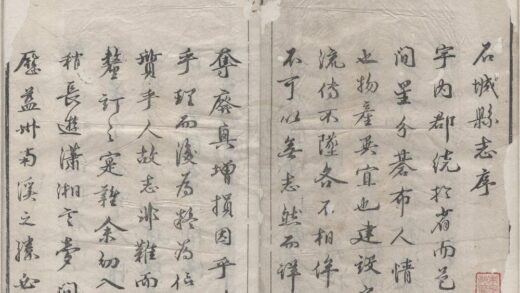 石城縣志序
宇內郡統於省而邑
間星分碁布人情
土物產異宜也建設
流傳不墜各不相侔
不可以無志然而詳
奪廢具增損因乎
乎理而後為核為信
贊乎人故志非難而
釐訂之寔難余幼入
稍長遊瀟湘雲夢間
歷益州南溪之勝